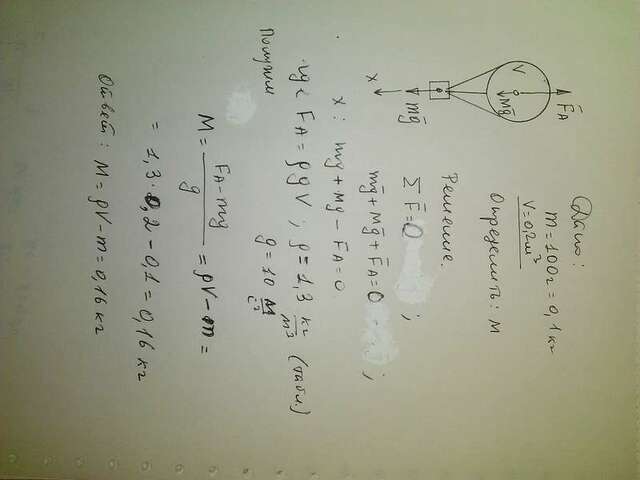 Дано:
m = 100г = 0,1 кг
V = 0,2 м³
Определить: M
F̅A
V
Mg̅
mg̅
x
Решение.
ΣF̅ = 0 ;
mg̅ + Mg̅ + F̅A = 0 ;
x: mg + Mg − FA = 0
где FA = ρgV ; ρ = 1,3 кг/м³ (табл.)
g = 10 м/с²
Получим
M = (FA − mg)/g = ρV − m =
= 1,3 · 0,2 − 0,1 = 0,16 кг
Ответ: M = ρV − m = 0,16 кг